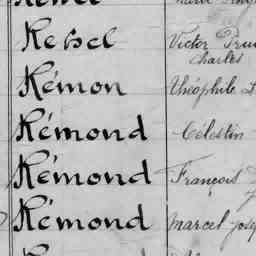 Kebel Victor
Charles
Rémon Théophile
Rémond Célestin
Rémond François
Rémond Marcel